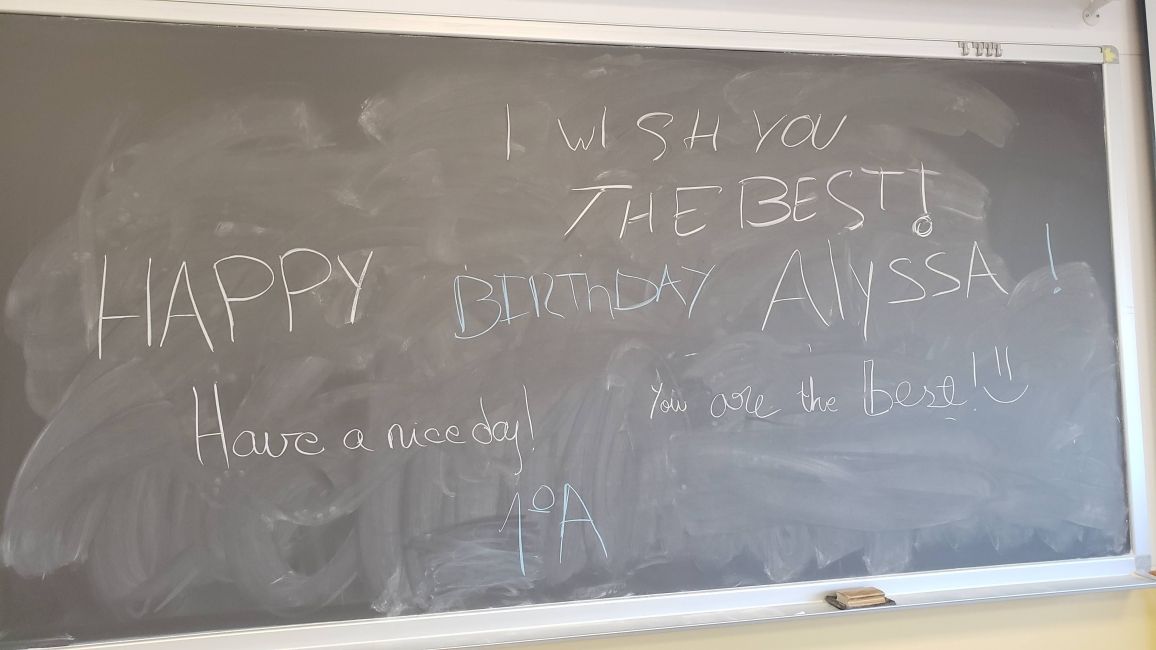 I WISH YOU
THE BEST!
HAPPY BIRThDAY AlySSA!
Have a nice day!
You are the best! :)
1ºA